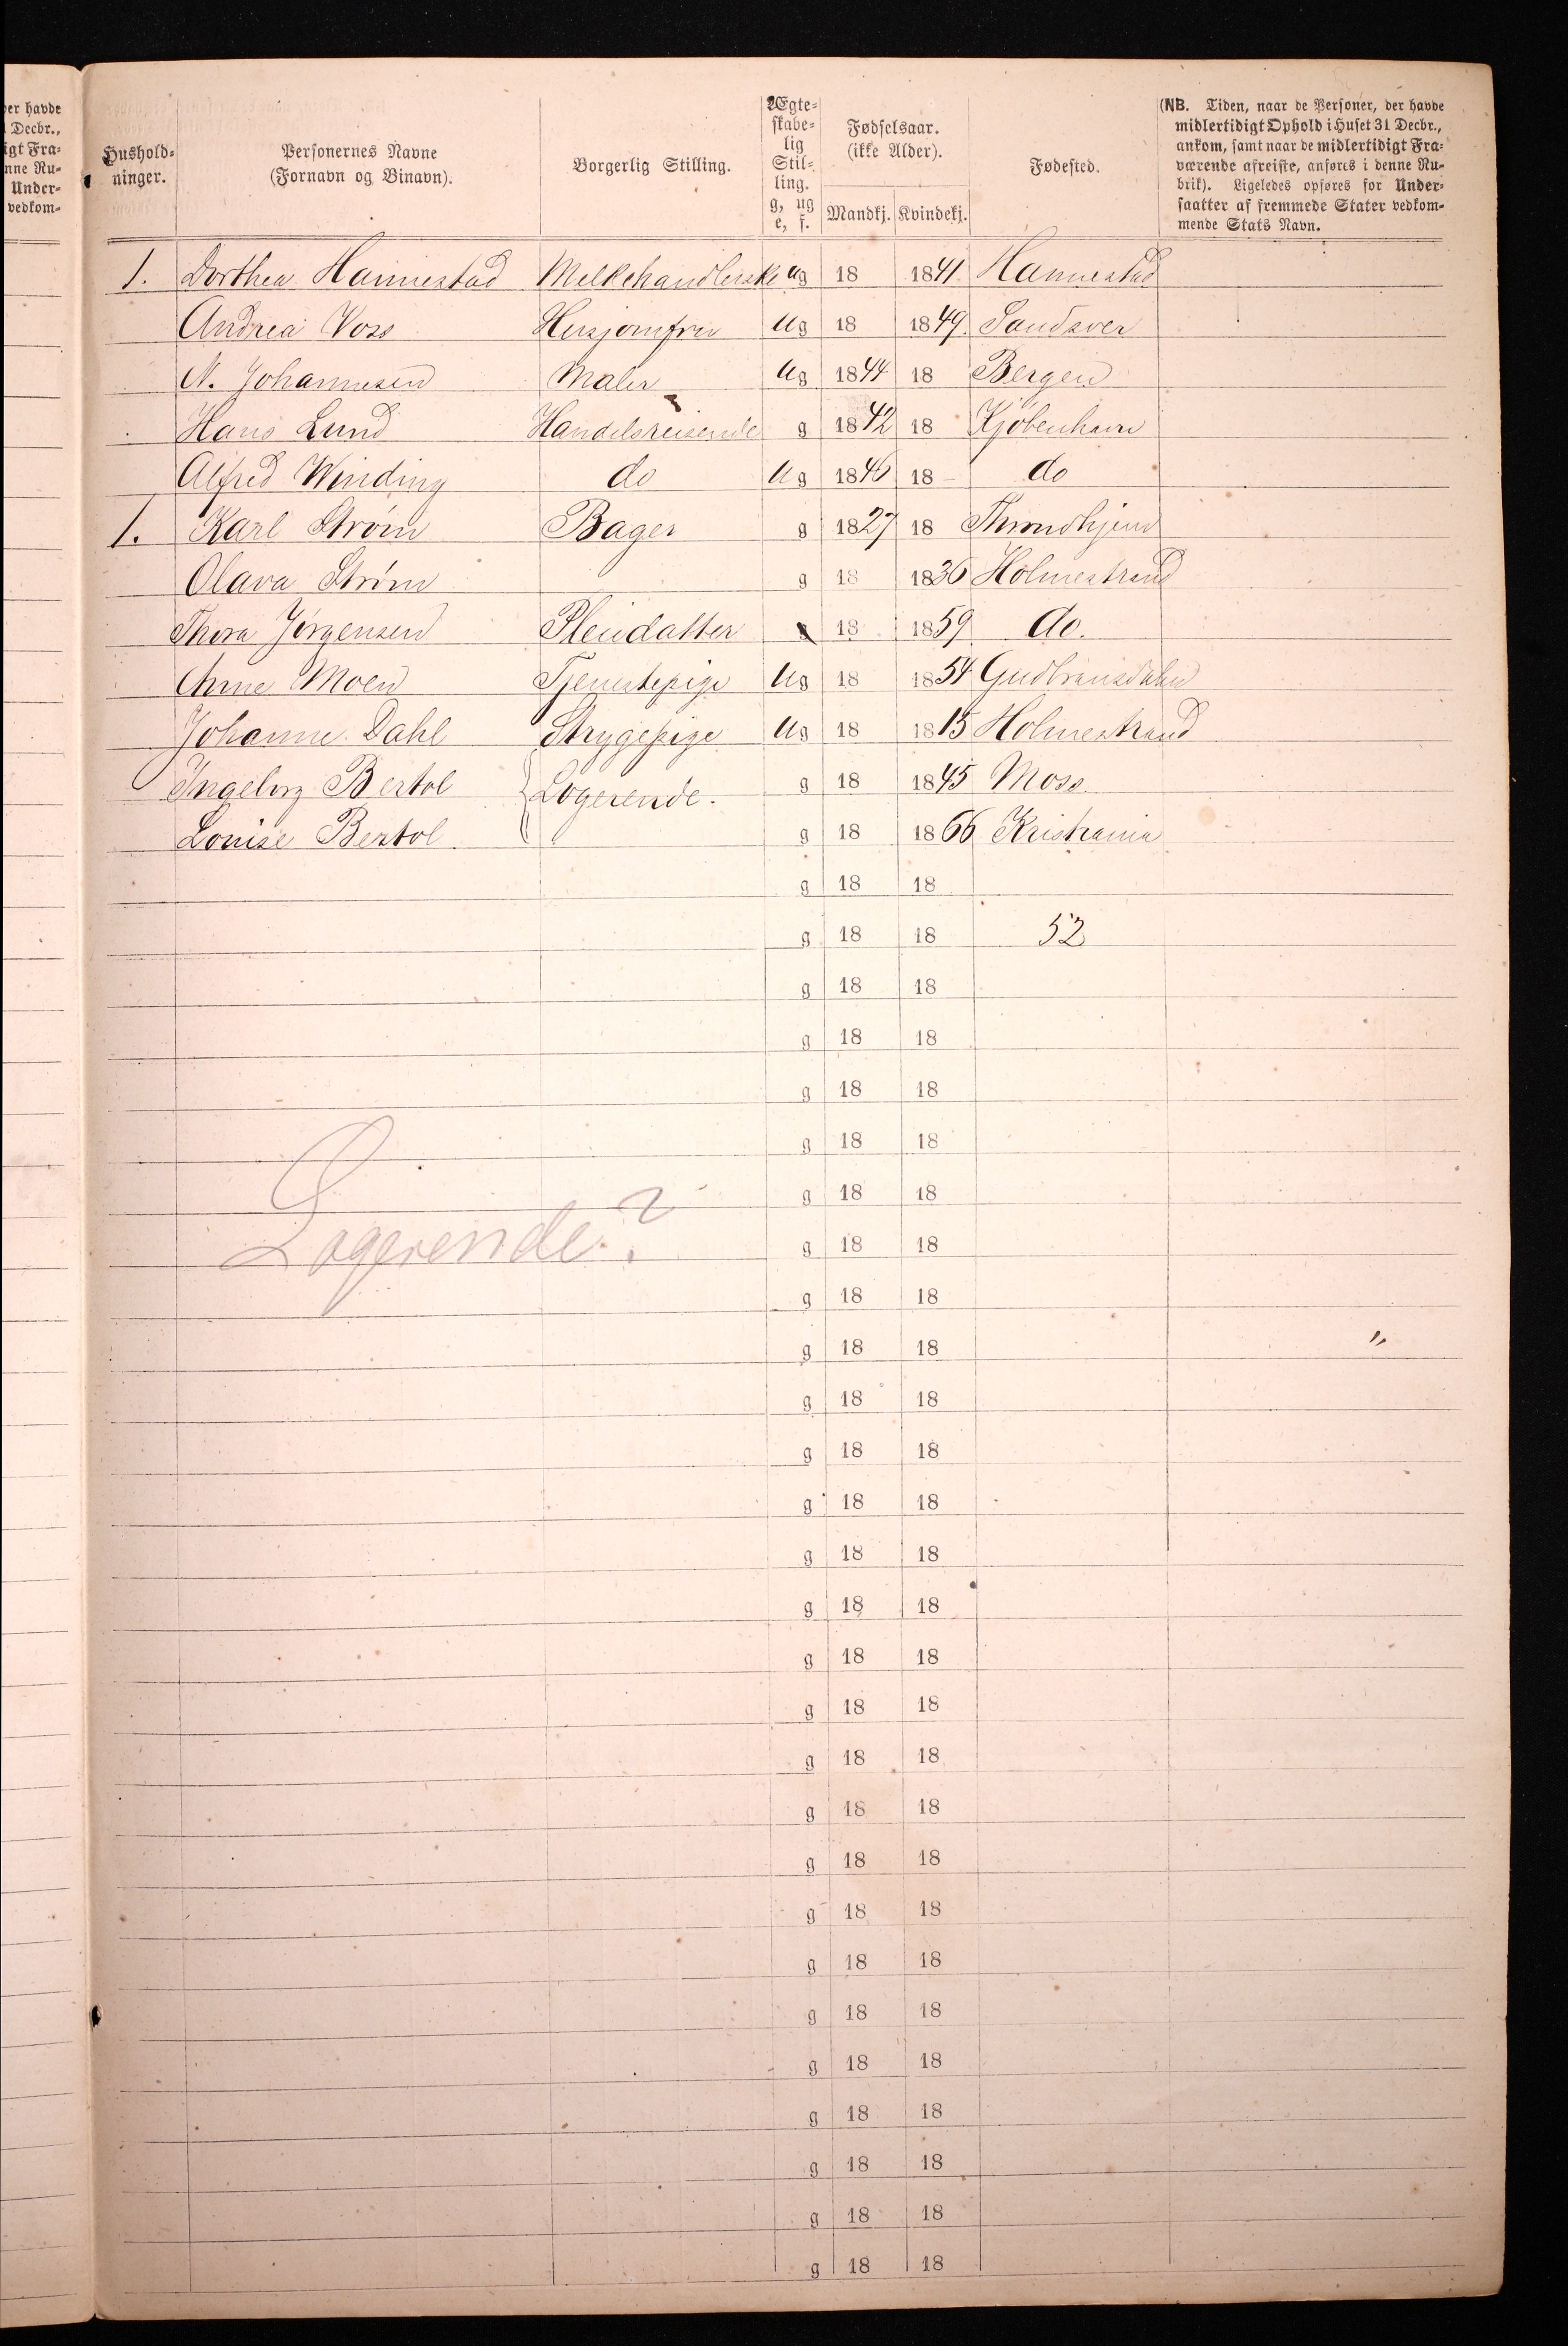 er havde
Decbr.,
igt Fra-
nne Ru-
Under-
vedkom-
Hushold-
ninger.
Personernes Navne
(Fornavn og Binavn).
Borgerlig Stilling.
Ægte-
skabe-
lig
Stil-
ling.
g, ug
e, f.
Fødselsaar.
(ikke Alder).
Mandkj. Kvindekj.
Fødested.
(NB. Tiden, naar de Personer, der havde
midlertidigt Ophold i Huset 31 Decbr.,
ankom, samt naar de midlertidigt Fra-
værende afreiste, anføres i denne Ru-
brik). Ligeledes opføres for Under-
saatter af fremmede Stater vedkom-
mende Stats Navn.
1. Dorthea Hannestad Melkehandlerske ug 18 1841 Hannestad
Andrea Voss Husjomfru Ug 18 1849 Sandsver
N. Johannesen Maler Ug 1844 18 Bergen
Hans Lund Handelsreisende g 1842 18 Kjøbenhavn
Alfred Winding do Ug 1846 18 do
1. Karl Strøm Bager g 1827 18 Throndhjem
Olava Strøm g 18 1836 Holmestrand
Thora Jørgensen Pleiedatter 18 1859 do.
Anne Moen Tjenestepige Ug 18 1854 Gudbransdalen
Johanne Dahl Strygepige Ug 18 1815 Holmestrand
Ingeborg Bertol Logerende. g 18 1845 Moss
Louise Bertol g 18 1866 Kristiania
g 18 18
g 18 18 52
g 18 18
g 18 18
g 18 18
g 18 18
g 18 18
Logerende? g 18 18
g 18 18
g 18 18 "
g 18 18
g 18 18
g 18 18
g 18 18
g 18 18
g 18 18
g 18 18
g 18 18
g 18 18
g 18 18
g 18 18
g 18 18
g 18 18
g 18 18
g 18 18
g 18 18
g 18 18
g 18 18